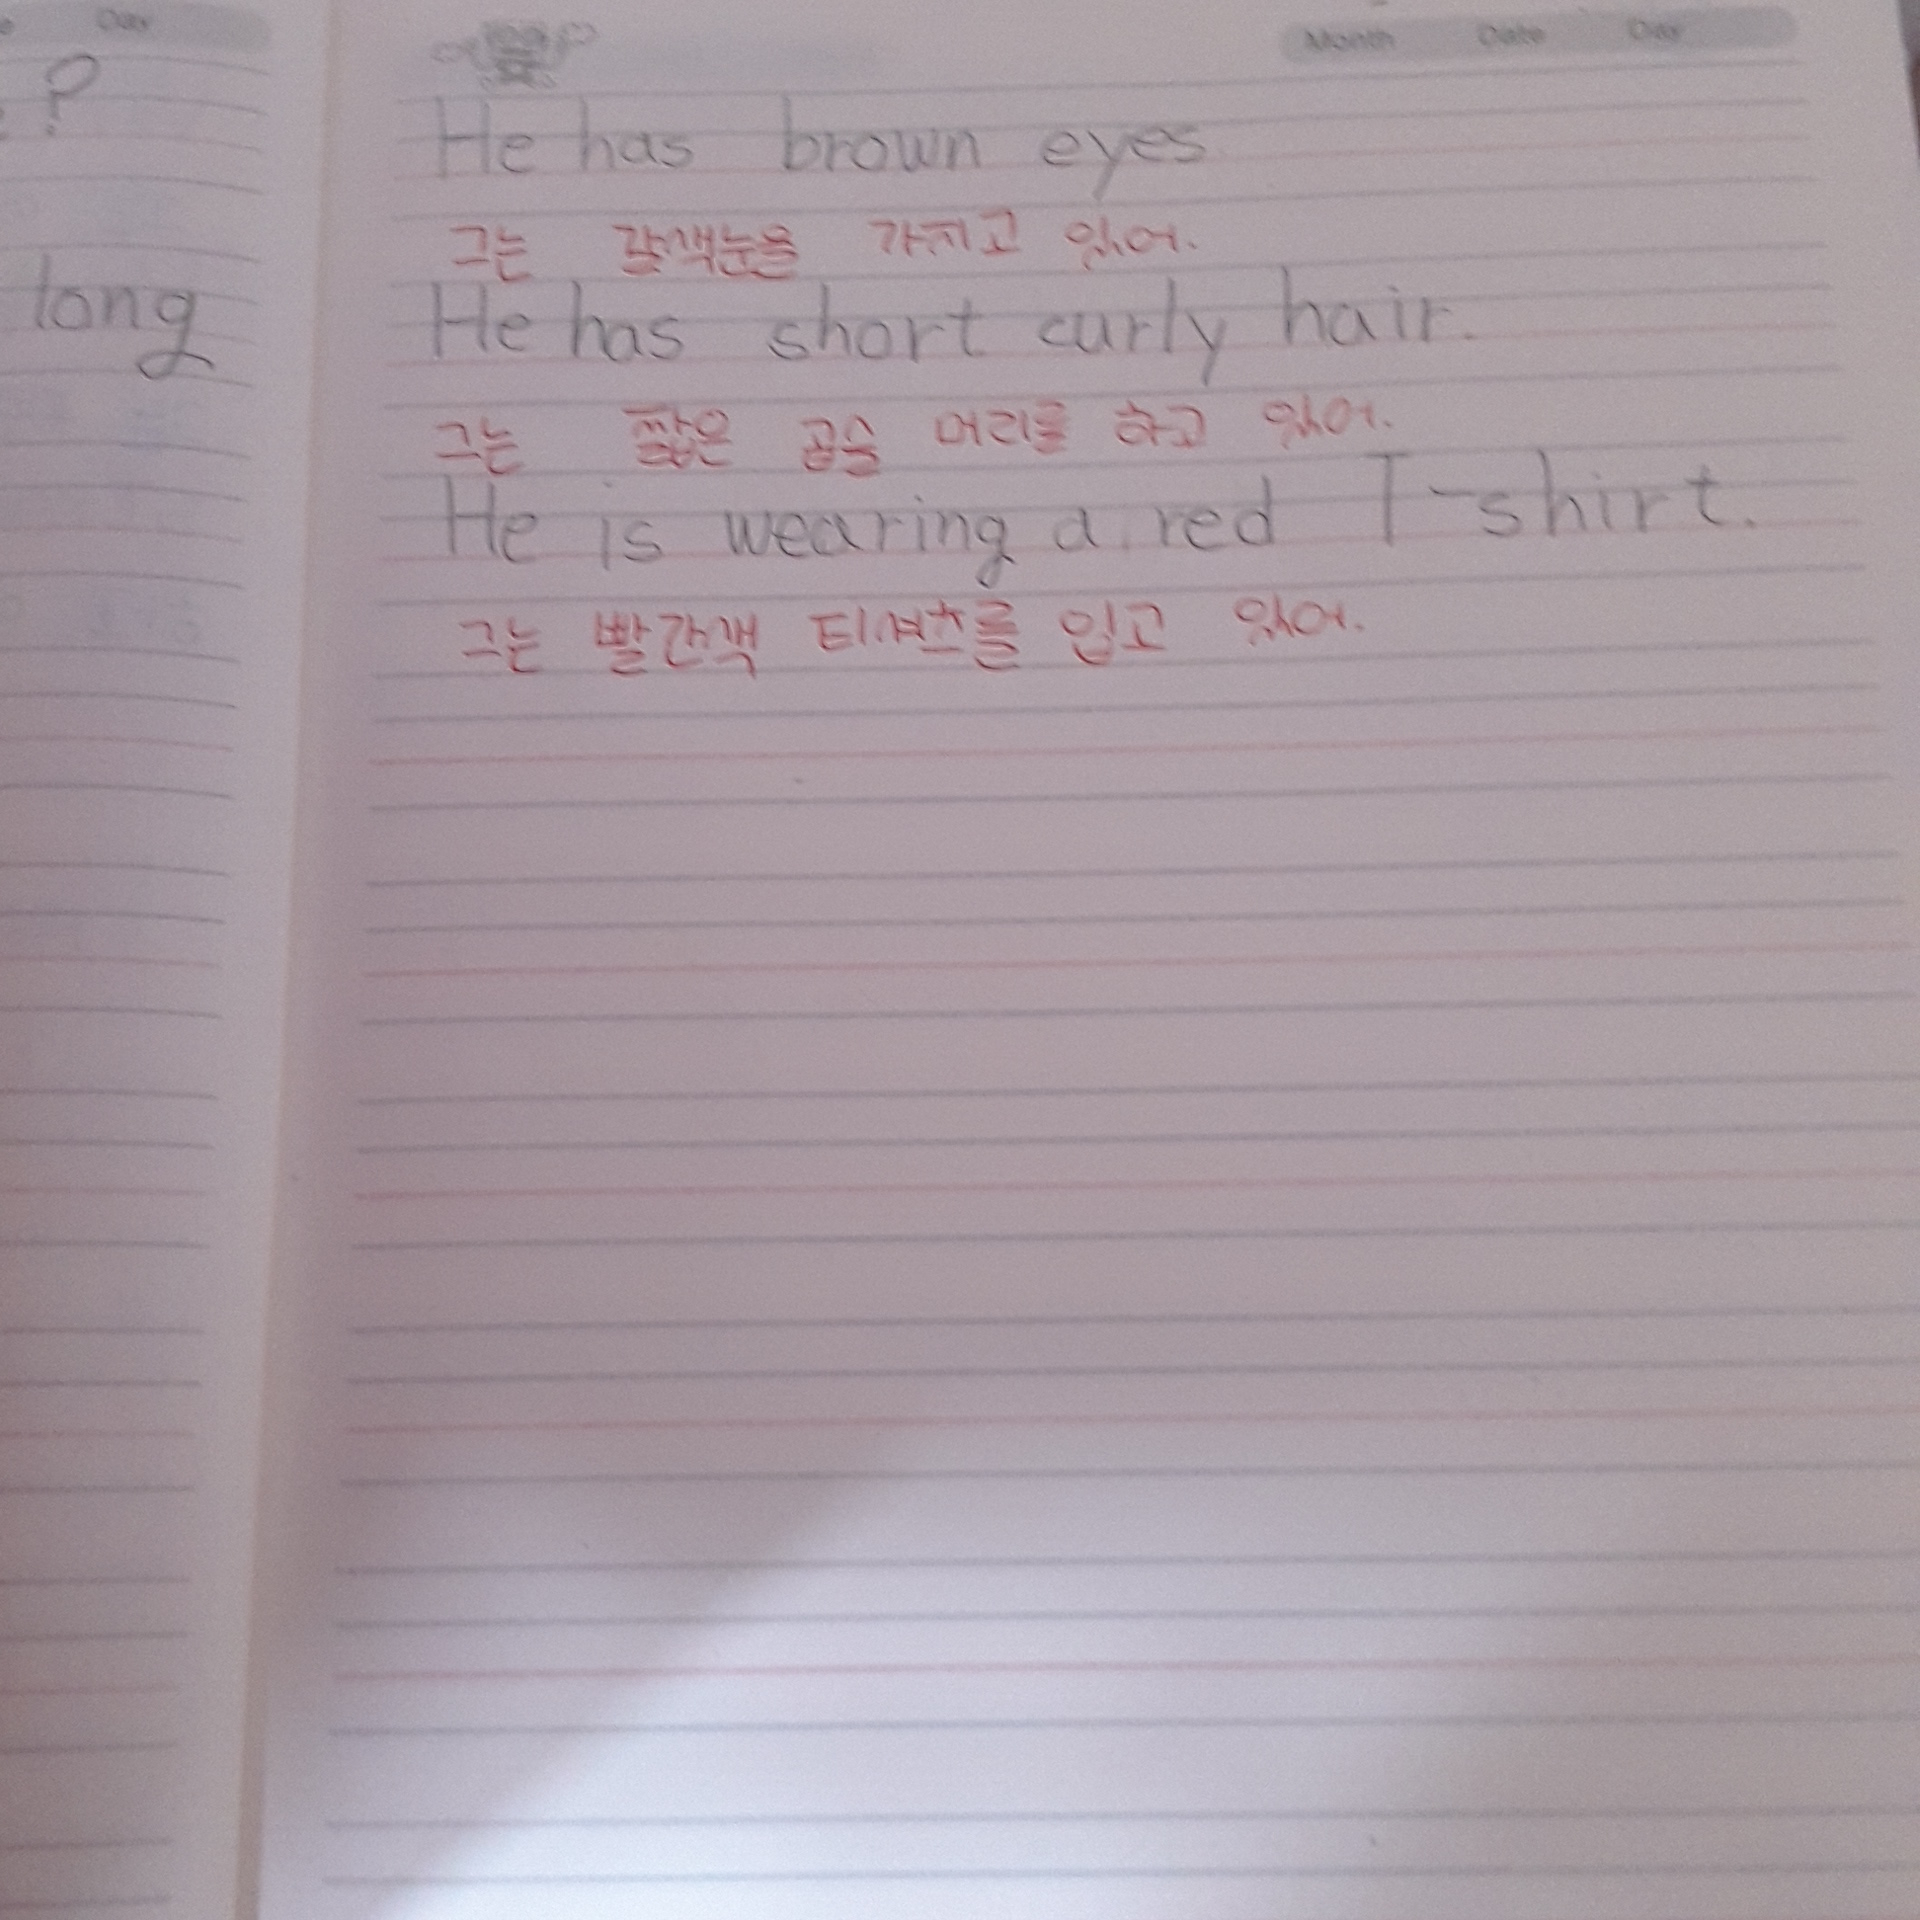 Day
?
long
Month Date Day
He has brown eyes
그는 갈색눈을 가지고 있어.
He has short curly hair.
그는 짧은 곱슬 머리를 하고 있어.
He is wearing a red T-shirt.
그는 빨간색 티셔츠를 입고 있어.